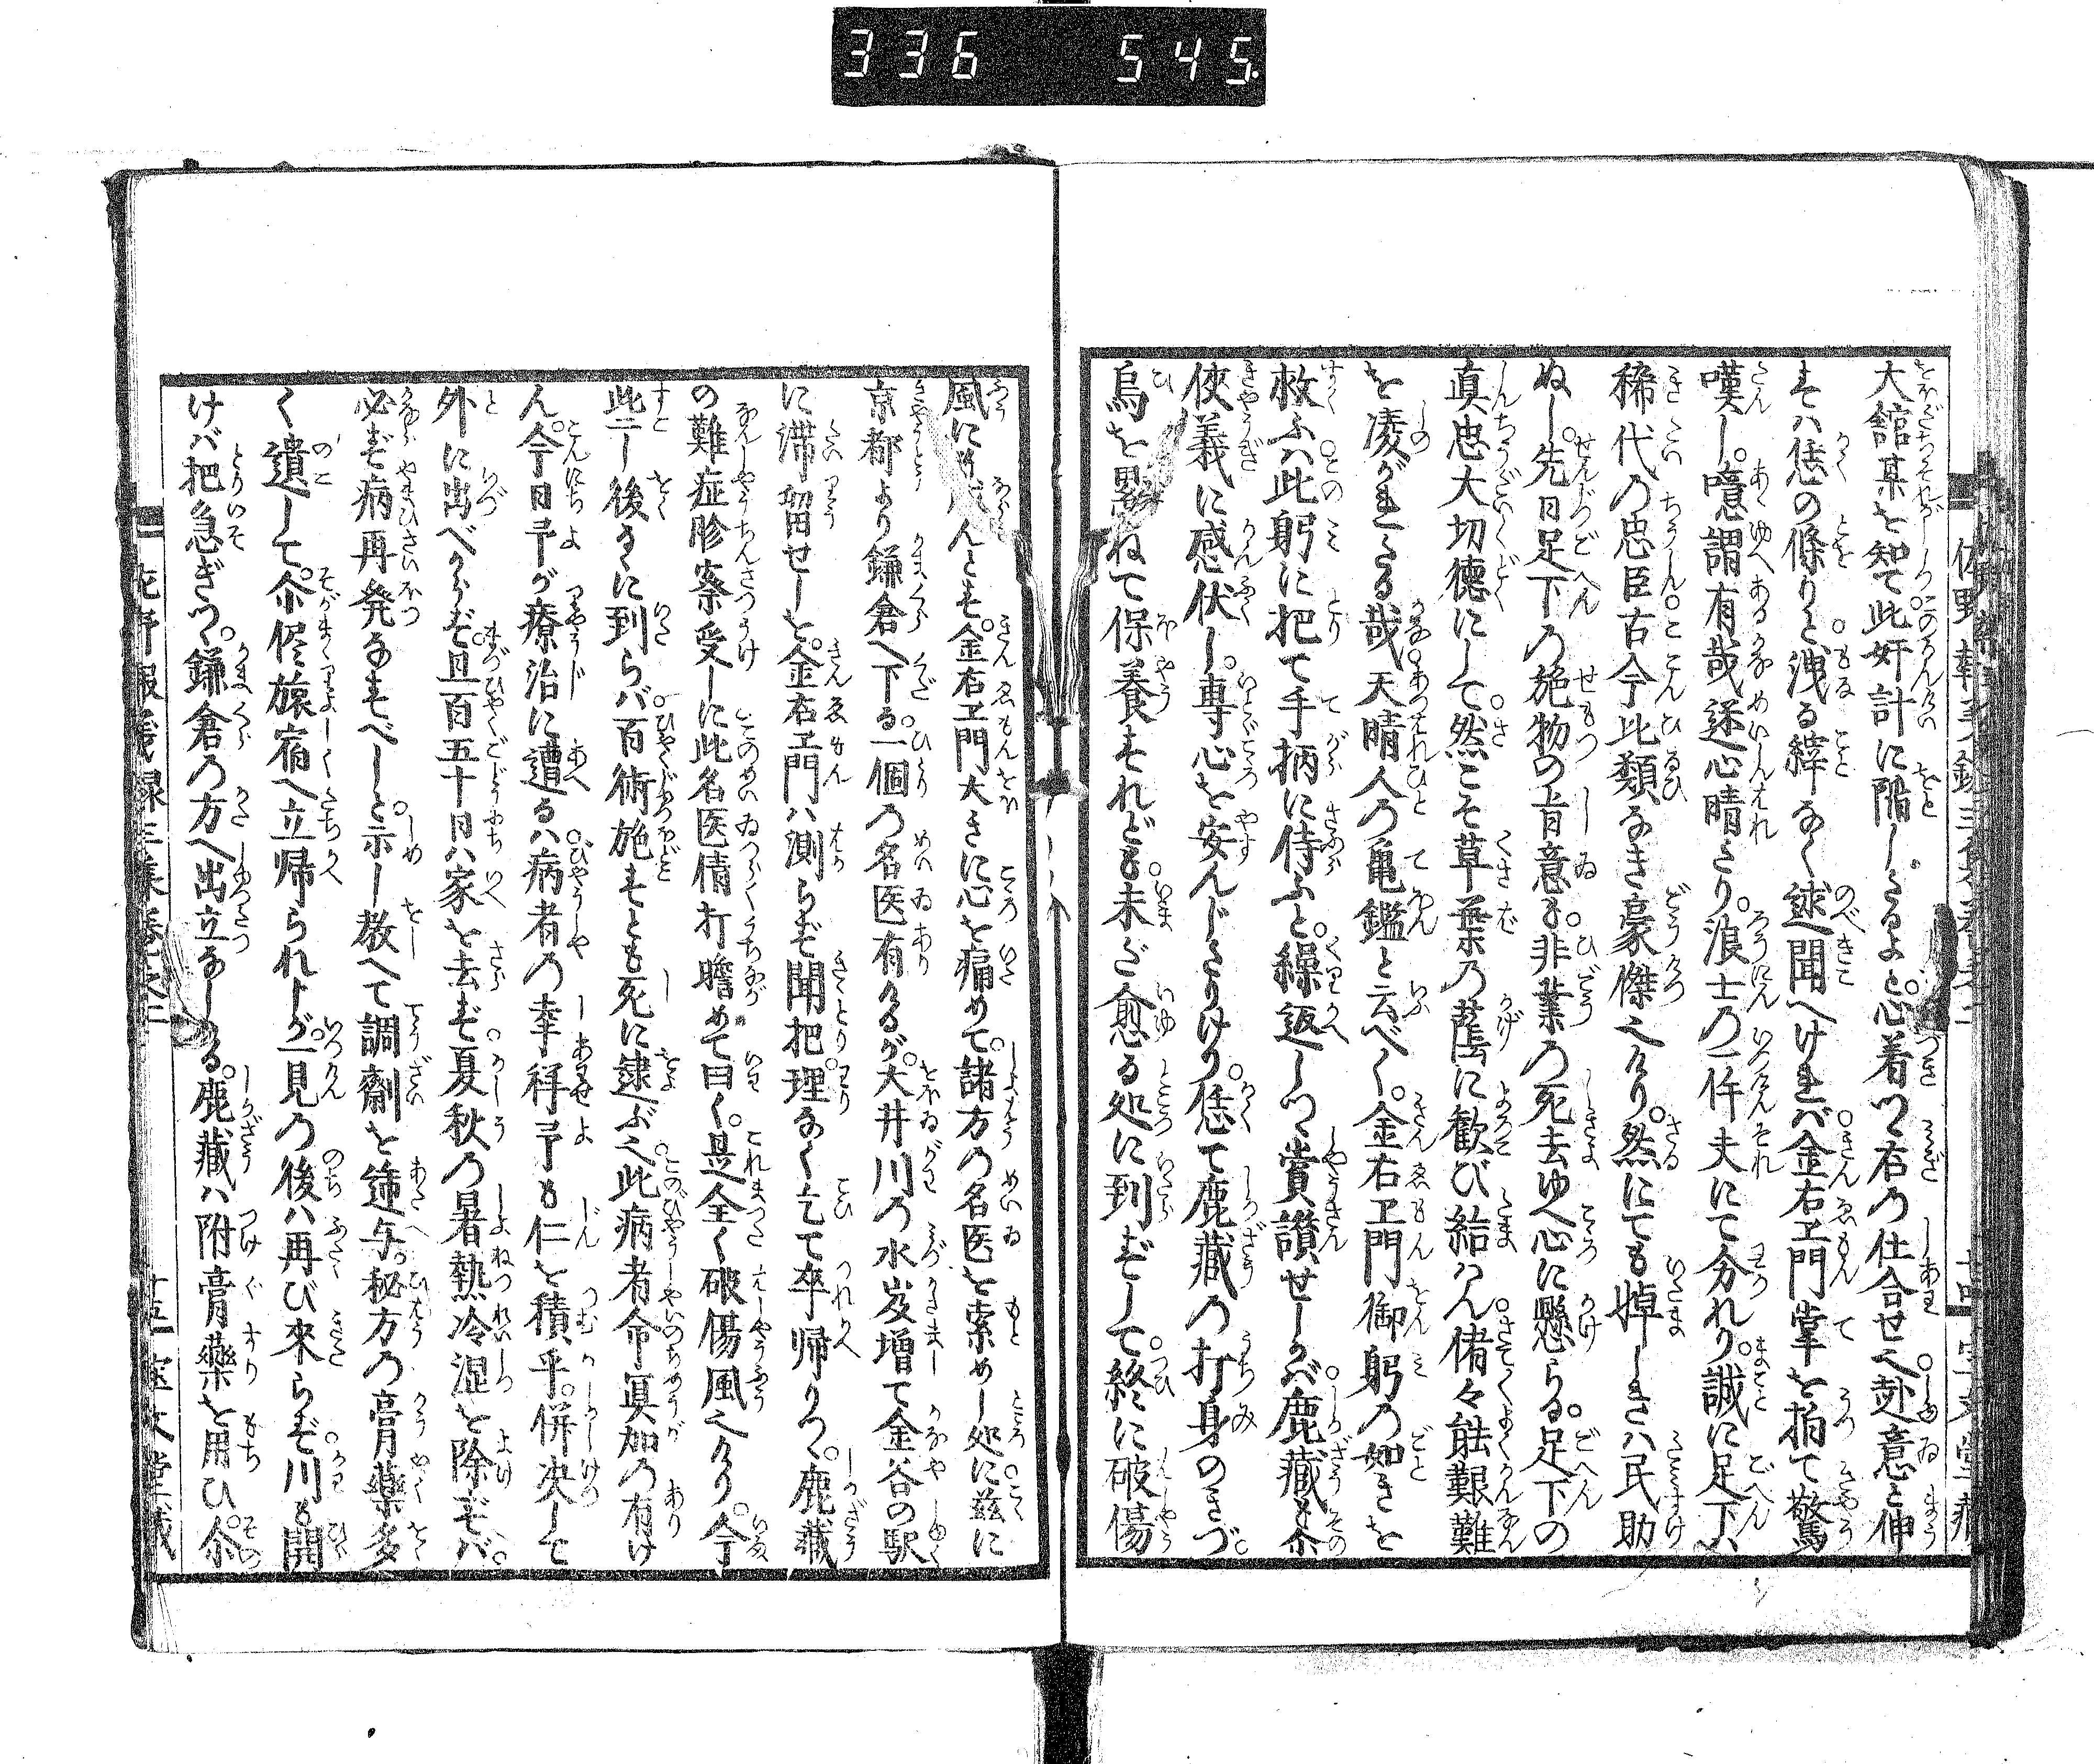 336 545
大舘某を知て此奸計に陥したるよと。心着つ右の仕合せ也。赴意と伸
すハ恁の條りと洩る繹なく逑聞へけれバ。金右エ門掌を拍て驚
嘆し。噫謂有哉迷心晴たり。浪士の一件夫にて分れり。誠に足下ハ
稀代の忠臣。古今比類なき豪傑也けり。然にても悼しきハ民助
ぬし。先日足下の施物の旨意も。非業の死去ゆへ心に懸らる。足下の
真忠大切徳にして。然こそ草葉の蔭に歓び給はん。偖々能艱難
を凌がれたる哉。天晴人の亀鑑と云べく。金右エ門御躬の如きを
救ふハ。此躬に把て手柄に侍ふと。繰返しつ賞讃せしかバ。鹿蔵も尒
侠義に感伏し。専心を安んじたりけり。恁て鹿蔵の打身のきづ。
を ねて保養すれども。未だ愈る処に到ずして。終に破傷
風に んとす。金右エ門大きに心を痛めて。諸方の名医を索めし処に。茲に
京都より鎌倉へ下る。一個の名医有けるが。大井川の水嵩増て金谷の駅
に滞留せしを。金右エ門ハ測らず聞把。理なく乞て卒帰りつ。鹿蔵
の難症胗察受しに。此名医倩打瞻めて曰く。是全く破傷風也けり。今
些し後るに到らバ。百術施すとも死に逮ぶ也。此病者命冥加の有け
ん。今日予が療治に遭るハ。病者の幸得予も仁を積乎。併决して
外に出べからず。且百五十日ハ家を去ず。夏秋の暑熱冷湿を除ずバ。
必ず病再発なすべしと。示し教へて調劑を遞与。秘方の膏藥多
く遺して。尒侭旅宿へ立帰られしが。一見の後ハ再び来らず。川も開
けバ把急ぎつ。鎌倉の方へ出立なしける。鹿蔵ハ附膏藥を用ひ。尒
佐野報義録三集巻之二
十五
蔵